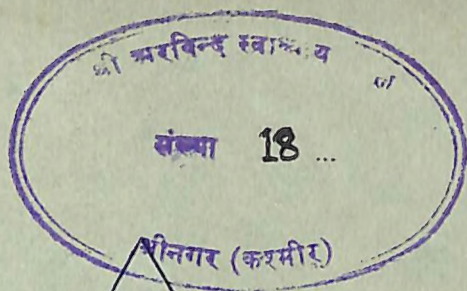 श्री अरविन्द स्वाध्याय
संख्या 18 ...
श्रीनगर (कश्मीर)